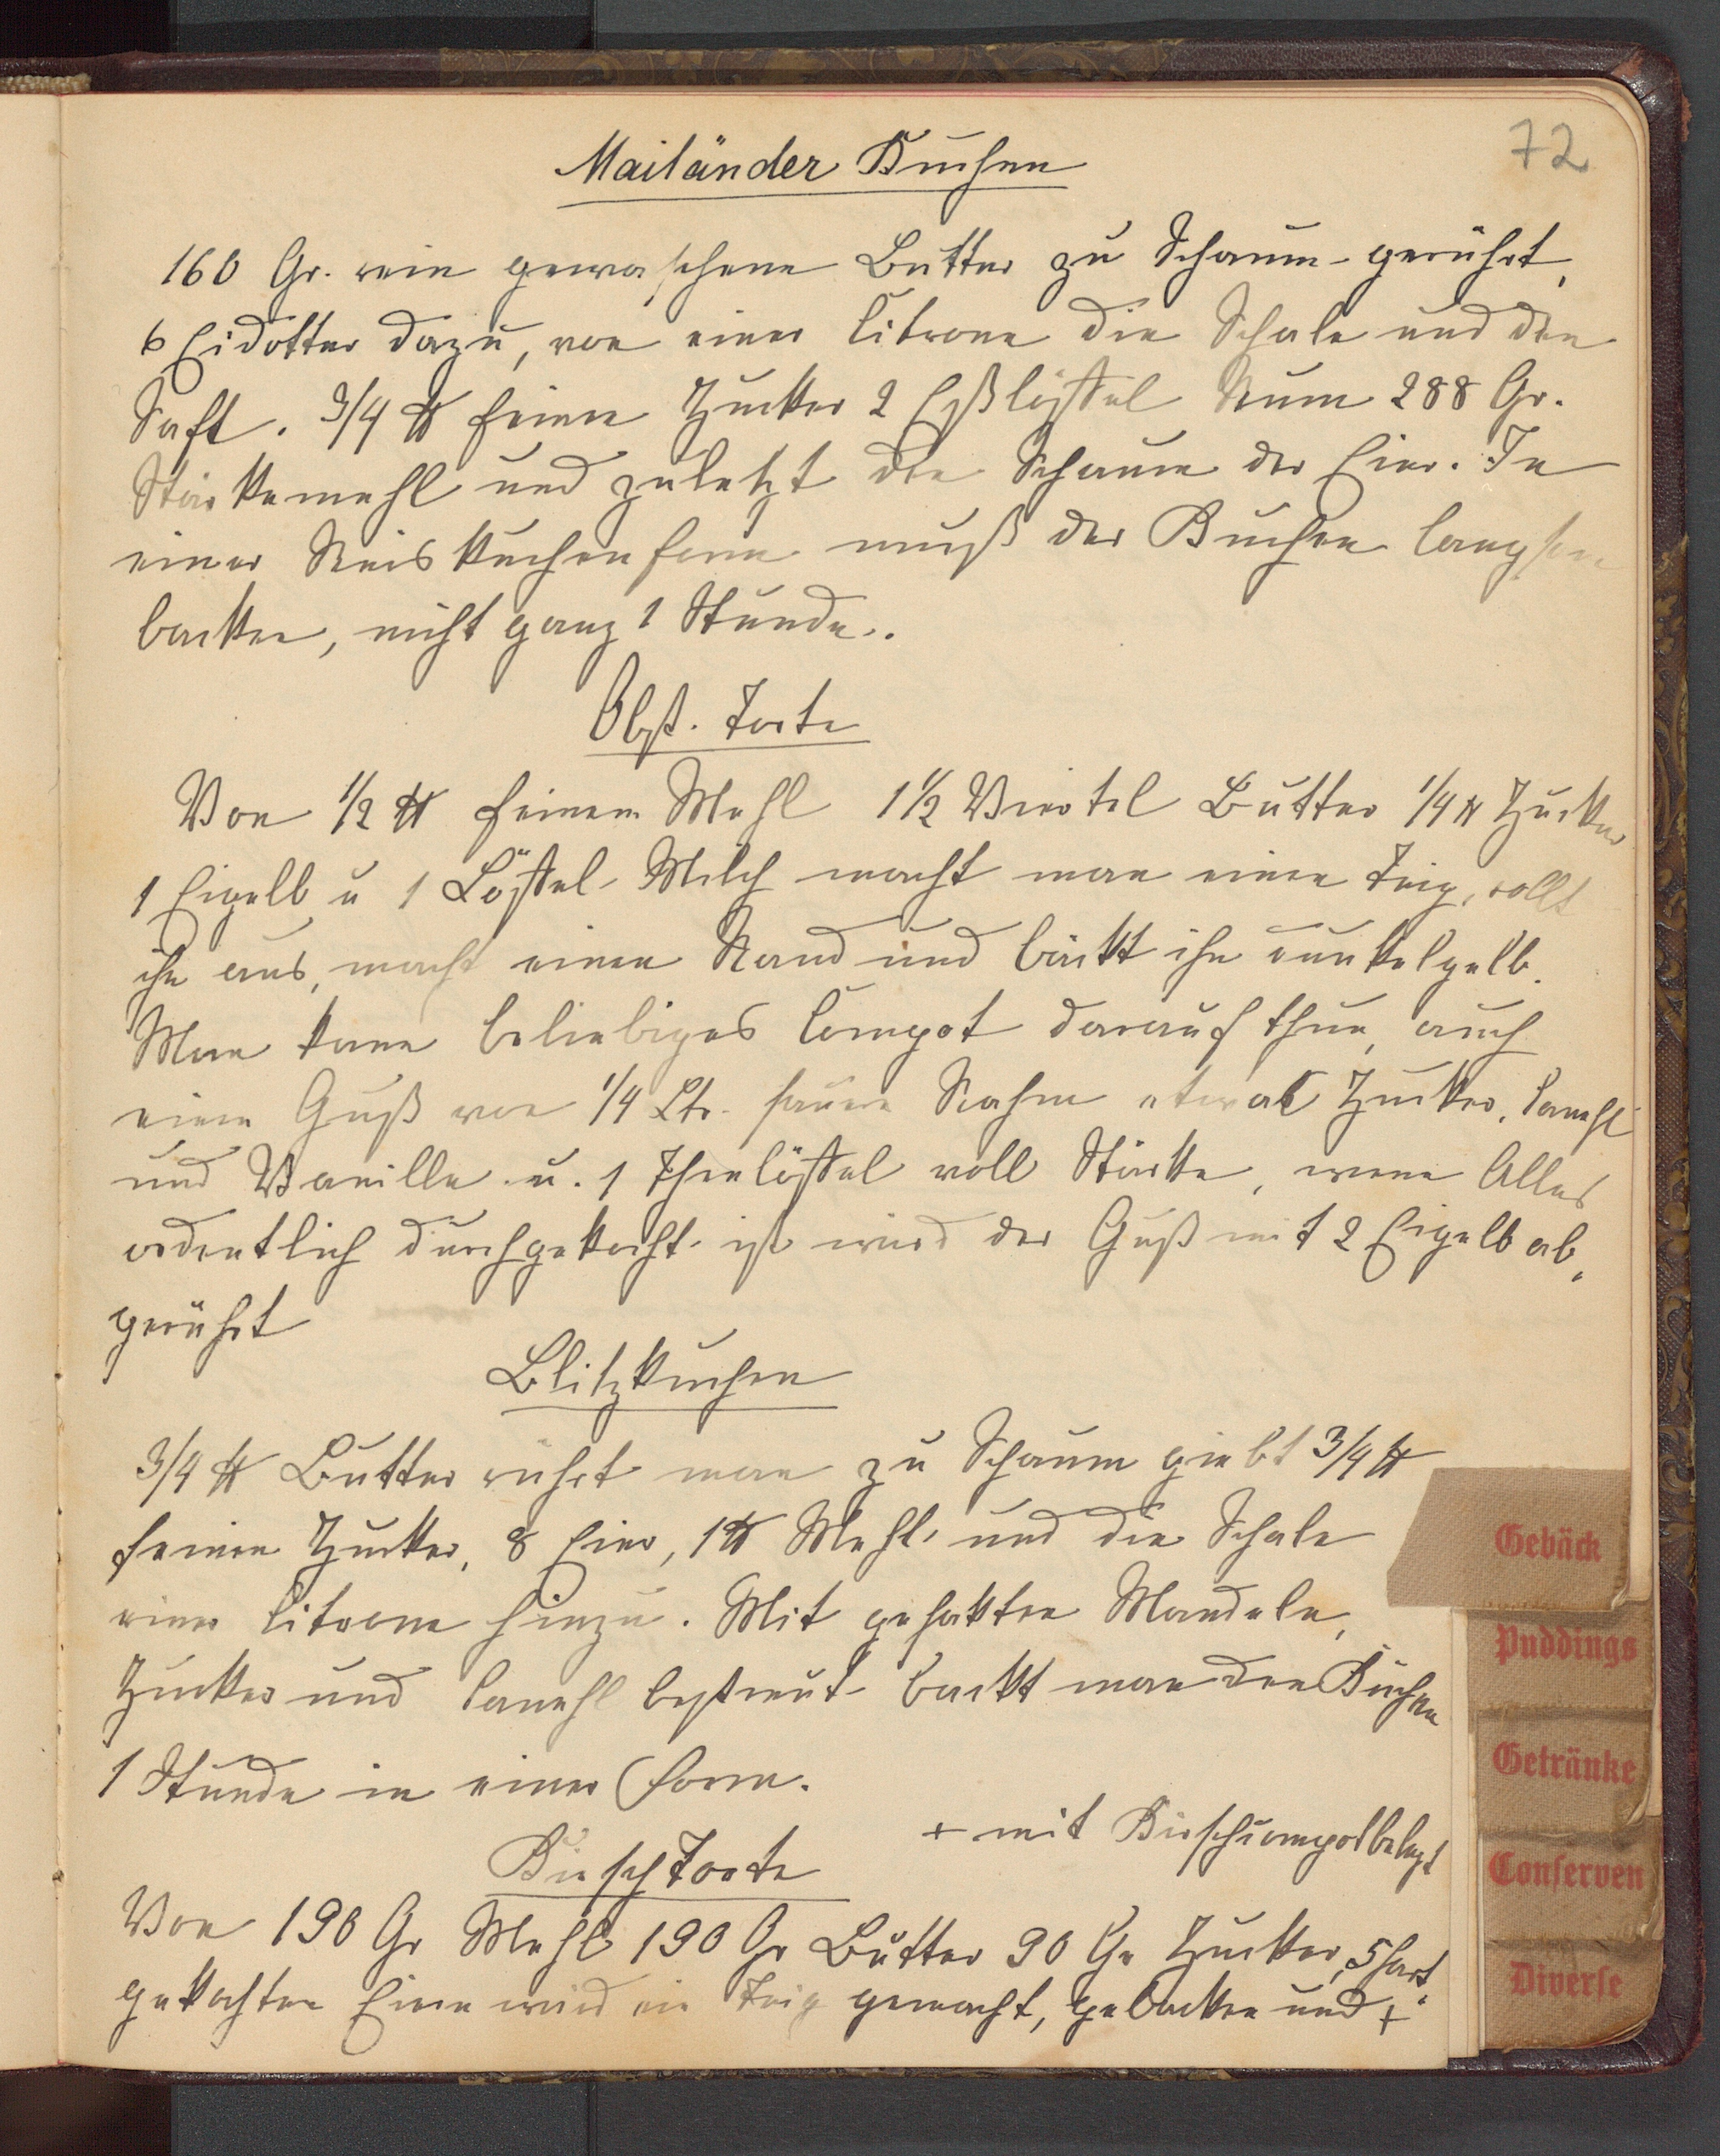 72
Mailänder Kuchen
160 Gr. rein gewaschene Butter zu Schaum gerührt,
6 Eidotter dazu, von einer Citrone die Schale und den
Saft. 3/4 ℔ feinen Zucker 2 Eßlöffel Rum 288 Gr.
Stärkemehl und zuletzt den Schaum der Eier. In
einer Reiskuchenform muß der Kuchen langsam
backen, nicht ganz 1 Stunde.
Obst-Torte
Von 1/2 ℔ feinem Mehl 1 1/2 Viertel Butter 1/4 ℔ Zucker
1 Eigelb u 1 Löffel Milch macht man einen Teig, rollt
ihn aus, macht einen Rand und bäckt ihn dunkelgelb.
Man kann beliebiges Compot darauf thun, auch
einen Guß von 1/4 Ltr. sauren Rahm etwas Zucker, Canehl
und Vanille u. 1 Theelöffel voll Stärke, wenn Alles
ordentlich durchgekocht ist wird der Guß mit 2 Eigelb ab„
gerührt
Blitzkuchen
3/4 ℔ Butter rührt man zu Schaum giebt 3/4 ℔
feinen Zucker, 8 Eier, 1 ℔ Mehl und die Schale
einer Citrone hinzu. Mit gehakten Mandeln,
Zucker und Canehl bestreut backt man den Kuchen
1 Stunde in einer Form.
+ mit Kirschcompot belegt
Kirschtorte
Von 190 Gr Mehl 190 Gr Butter 90 Gr Zucker, 5 hart
gekochten Eiern wird ein Teig gemacht, gebacken und +
Gebäck
Puddings
Getränke
Conserven
Diverse